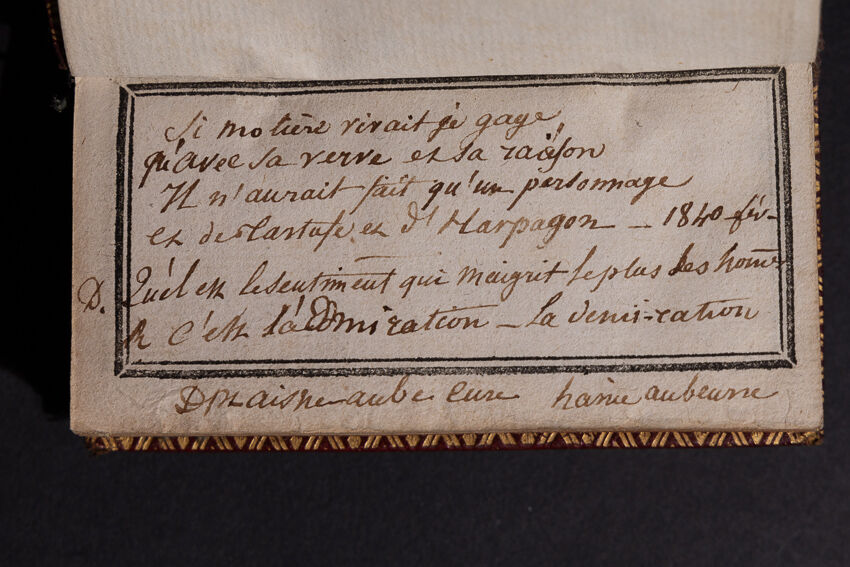 Si moliere vivait je gage
qu'avec sa verve et sa raison
Il n'aurait fait qu'un personnage
et de tartufe et d'Harpagon _ 1840 fév-
D. Quel est le sentiment qui maigrit le plus les hom-
R c'est l'admiration _ la demi-ration
aisne aube eure haine au beurre